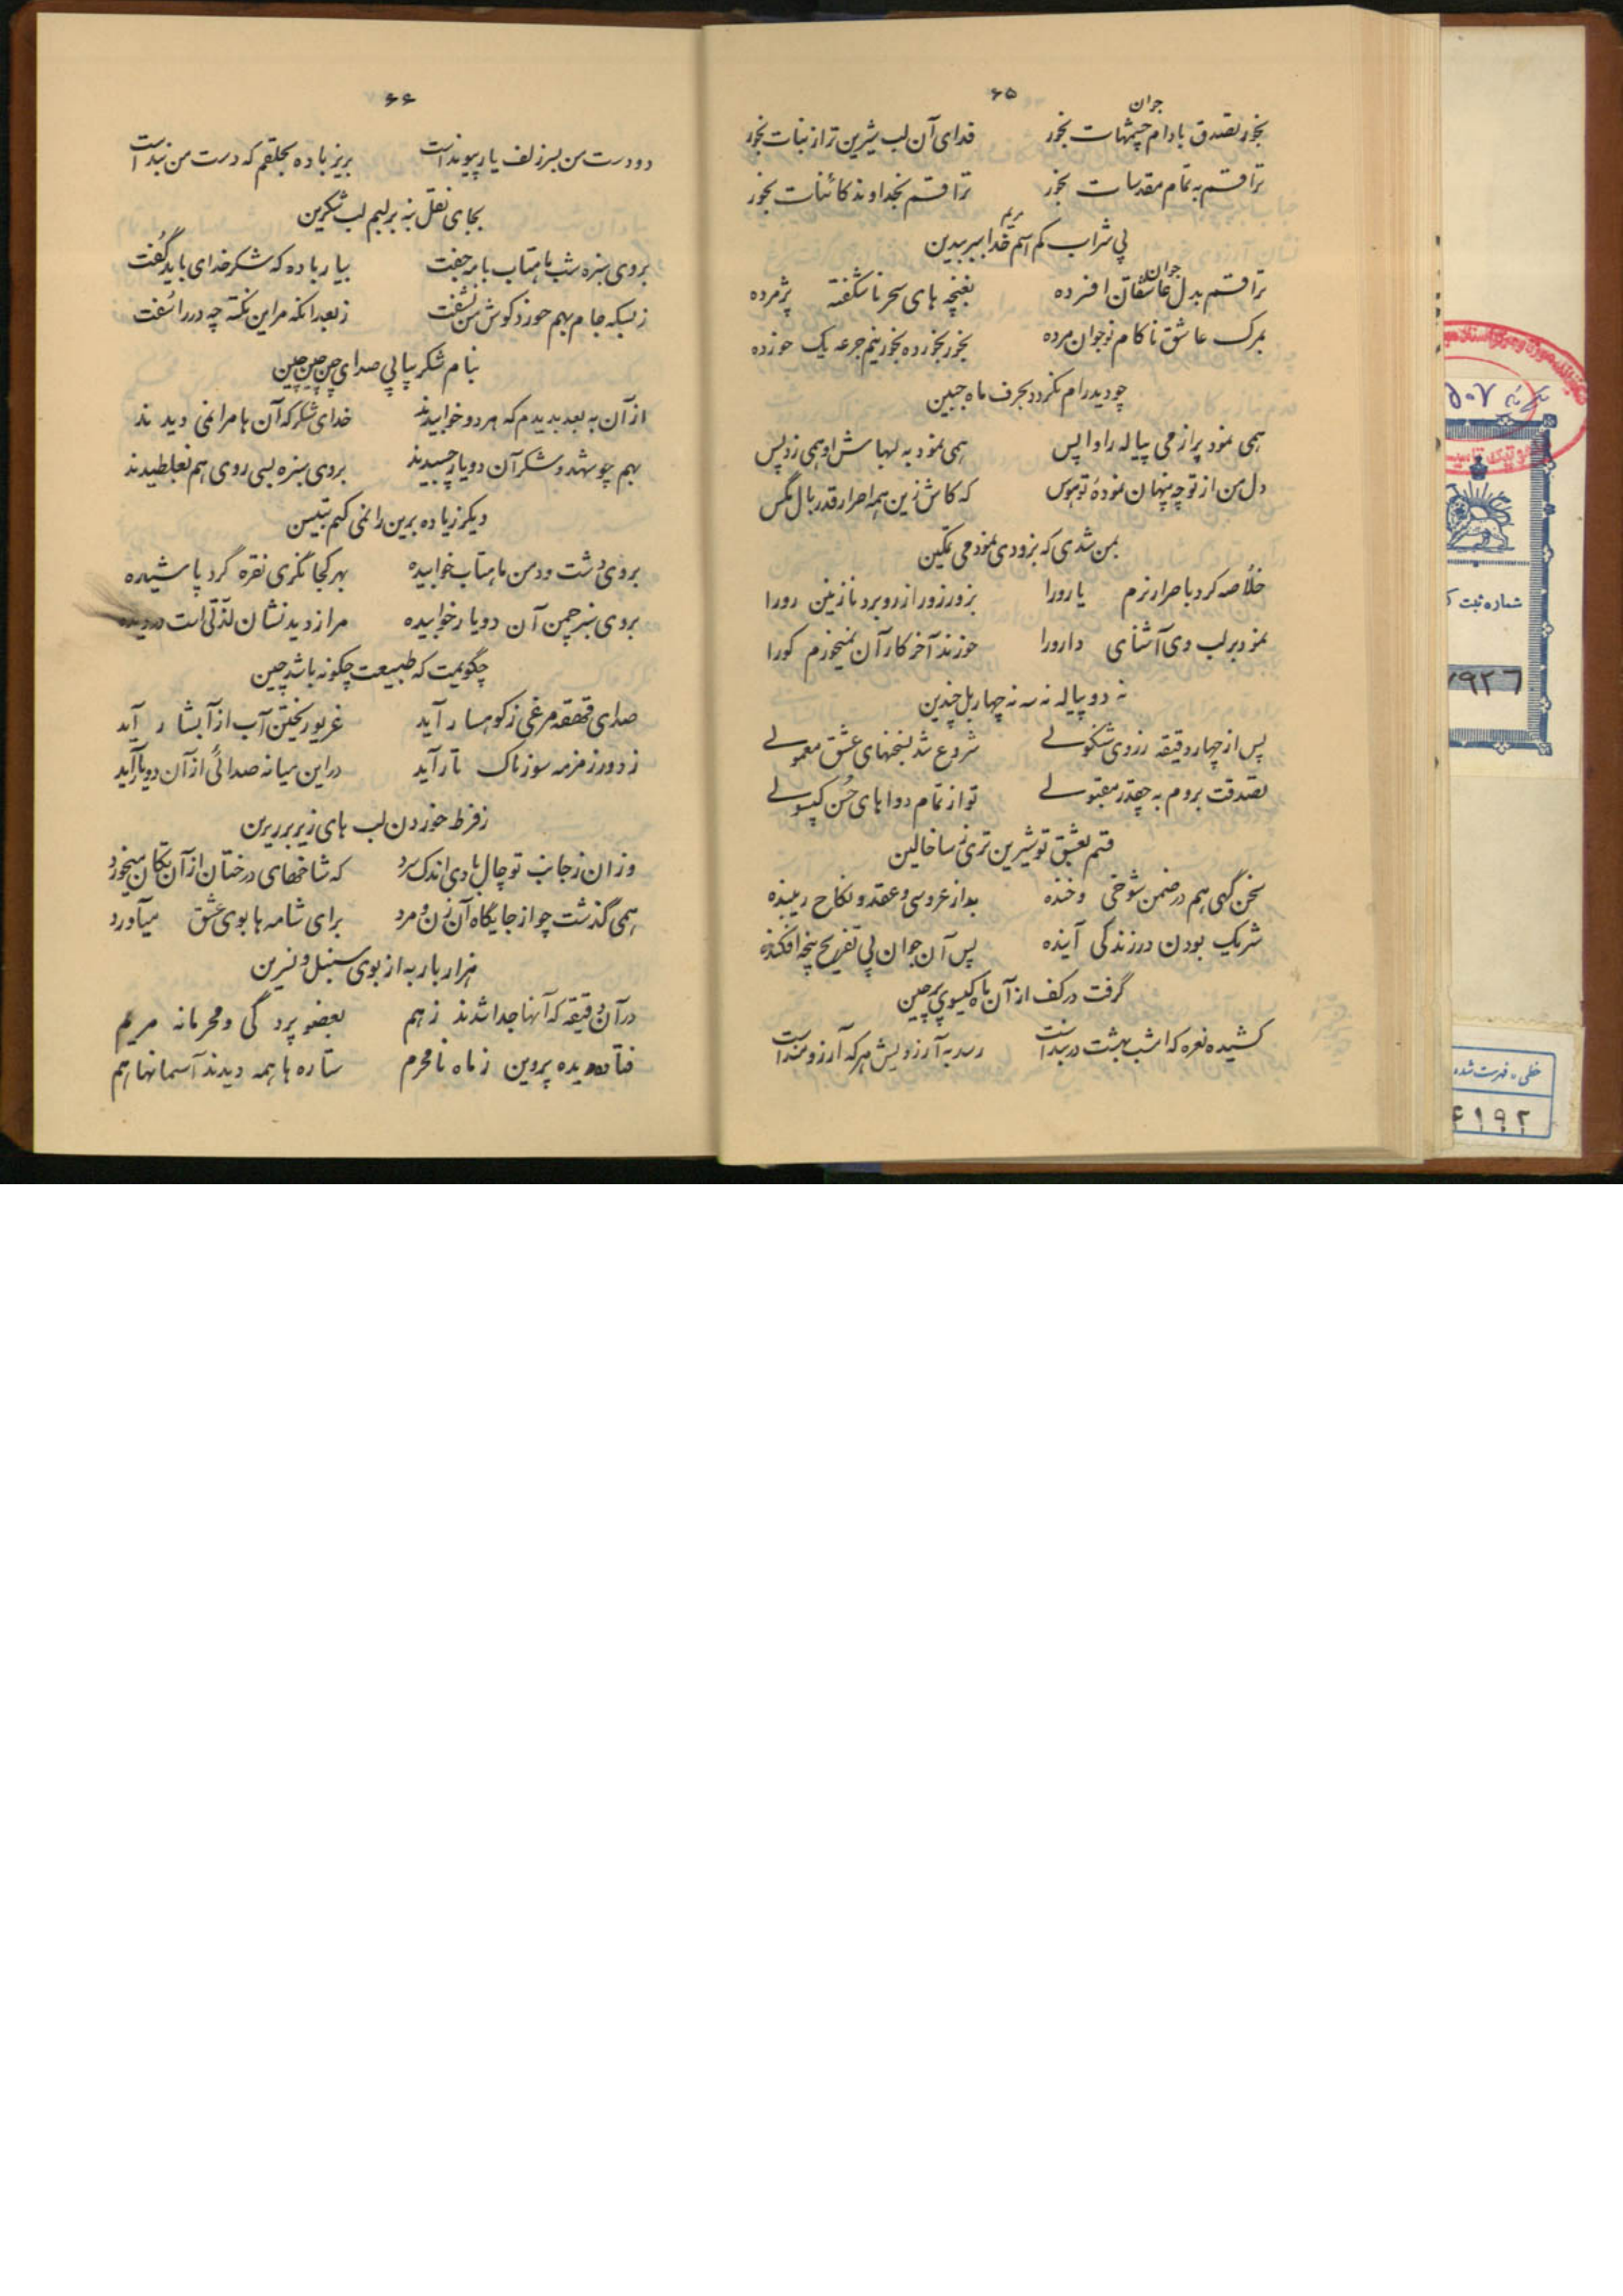 ۶۵
جوان
بخور تصدق بادام چشمهات بخور فدای آن لب شیرین تر از نبات بخور
ترا قسم به تمام مقدسات بخور ترا قسم بخداوند کائنات بخور
مریم
پی شراب کم اسم خدا ببر بیدین
جوان
ترا قسم بدل عاشقان افسرده بغنچه های سحر ناشکفته پژمرده
بمرگ عاشق ناکام نوجوان مرده بخور بخورده بخور نیم جرعه یک خورده
چو دید رام نگردد بحرف ماه جبین
همی نمود پر از می پیاله را واپس همی نمود به لبهاش او همی زد پس
دل من از تو چه پنهان نموده تو هوس که کاش زین همه اصرار قدر بال مگس
بمن شدی که بزودی نمودمی تمکین
خلاصه کرد باصرار نرم یارو را بزور زور از رو برد نازنین رو را
نمود بر لب وی آشنای دارو را خورند آخر کار آن نمیخورم کو را
نه دو پیاله نه سه نه چهار بل چندین
پس از چهار دقیقه ز روی شنگولی شروع شد بسخنهای عشق معمولی
تصدقت بروم به چقدر مقبولی تو از تمام دواهای حسن کپسولی
قسم بعشق تو شیرین تری ز ساخالین
سخن گهی هم در ضمن شوخی و خنده بد از عروسی و عقد و نکاح زیبنده
شریک بودن در زندگی آینده پس آن جوان پی تفریح پنجه افکنده
گرفت در کف از آن ماه گیسوی پرچین
کشیده نعره که امشب بهشت دربند است رسد به آرزویش هر که آرزومند است
۶۶
دو دست من بسر زلف یار پیوند است بریز باده بحلقم که دست من بند است
بجای نقل بنه بر لبم لب شکرین
بروی سبزه شب ماهتاب با مه جفت بیار باده که شکر خدای باید گفت
ز بسکه جام بهم خورد گوش من نشنفت ز بعد آنکه مر این نکته چه در را سفت
بنام شکر پیاپی صدای چین چین چین
از آن به بعد بدیدم که هر دو خوابیدند خدای شکر که آن ها مرا نمی دیدند
بهم چو شهد و شکر آن دو یار چسبیدند بروی سبزه بسی روی هم بغلطیدند
دیگر زیاده بر این را نمی کنم تبیین
بروی دشت و دمن ماهتاب خوابیده بهر کجا نگری نقره گرد پاشیده
بروی سبز چمن آن دو یار خوابیده مرا ز دیدنشان لذتی است در دیده
چگویمت که طبیعت چگونه باشد چین
صدای قهقهه مرغی ز کوهسار آید غریو ریختن آب از آبشار آید
ز دور زمزمه سوزناک تار آید در این میانه صدائی از آن دو یار آید
ز فرط خوردن لب های زیر بر برین
وزان ز جانب توچال بادی اندک سرد که شاخهای درختان از آن تکان میخورد
همی گذشت چو از جایگاه آن زن و مرد برای شامه ها بوی عشق میآورد
هزار بار به از بوی سنبل و نسرین
در آن دقیقه که آنها جدا شدند ز هم بعضو پردگی و محرمانه مریم
فتاد دیده پروین ز ماه نامحرم ستاره ها همه دیدند آسمانها هم
شماره ثبت ک
۷۹۲۶
خطی - فهرست شده
۶۱۹۲